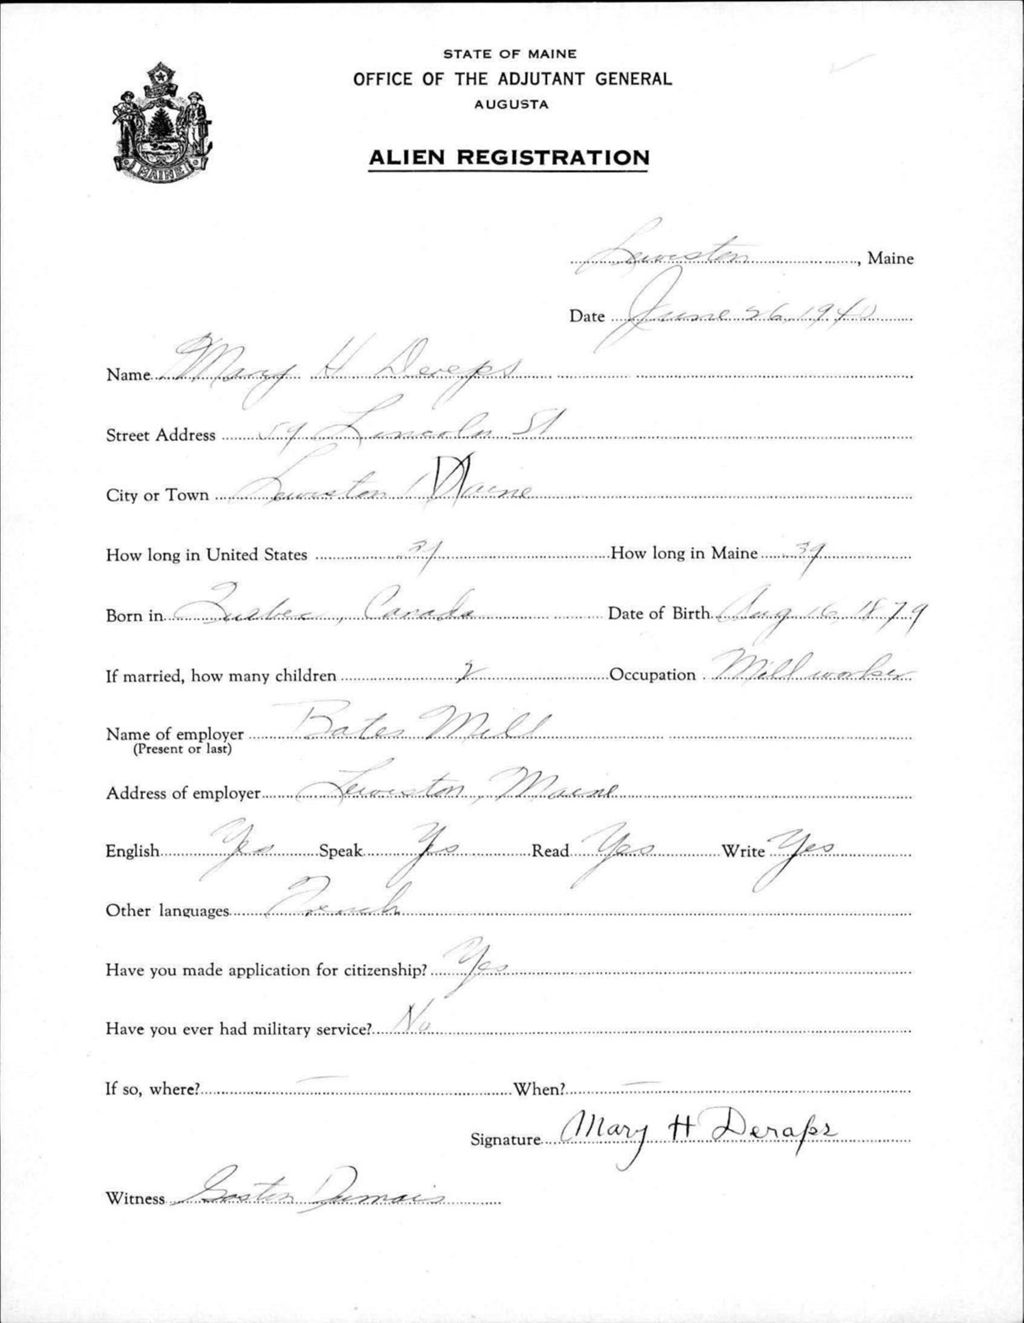 STATE OF MAINE
OFFICE OF THE ADJUTANT GENERAL
AUGUSTA
ALIEN REGISTRATION
MAINE
Lewiston, Maine
Date June 26, 1940
Name Mary H Dereps
Street Address 59 Lincoln St
City or Town Lewiston, Maine
How long in United States 39 How long in Maine 39
Born in Quebec, Canada Date of Birth Aug 16, 1879
If married, how many children 2 Occupation Mill worker
Name of employer Bates Mill
(Present or last)
Address of employer Lewiston, Maine
English Yes Speak Yes Read Yes Write Yes
Other languages French
Have you made application for citizenship? Yes
Have you ever had military service? No
If so, where? — When? —
Signature Mary H Deraps
Witness Gaston Dumais